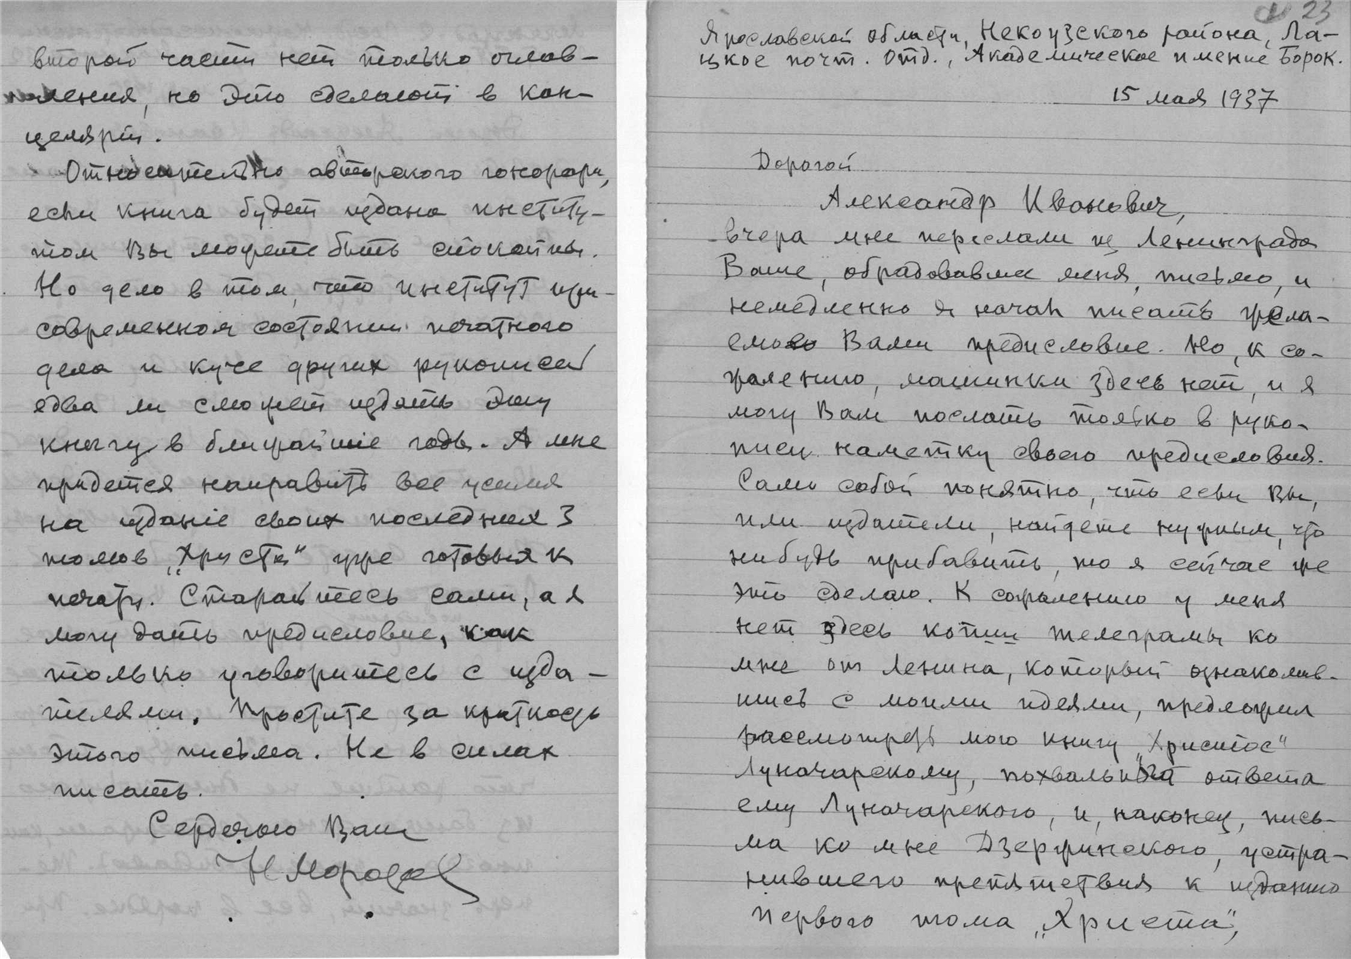 второй части нет только оглав-
ления, но это сделают в кан-
целярии.
Относительно авторского гонорара,
если книга будет издана институ-
том Вы можете быть спокойны.
Но дело в том, что институт при
современном состоянии печатного
дела и куче других рукописей
едва ли сможет издать эту
книгу в ближайшие годы. А мне
придется направить все усилия
на изданіе своих последних 3
томов „Христа" уже готовых к
печати. Старайтесь сами, а я
могу дать предисловие, как
только уговоритесь с изда-
телями. Простите за краткость
этого письма. Не в силах
писать.
Сердечно Ваш
Н Морозов
23
Ярославской области, Некоузского района, Ла-
цкое почт. отд., Академическое имение Борок.
15 мая 1937
Дорогой
Александр Иванович,
вчера мне переслали из Ленинграда
Ваше, обрадовавшее меня, письмо, и
немедленно я начал писать жела-
емое Вами предисловие. Но, к со-
жалению, машинки здесь нет, и я
могу Вам послать только в руко-
писи наметку своего предисловия.
Само собой понятно, что если Вы,
или издатели, найдете нужным, что
нибудь прибавить, то я сейчас же
это сделаю. К сожалению у меня
нет здесь копии телеграмы ко
мне от Ленина, который ознакомив-
шись с моими идеями, предложил
рассмотреть мою книгу „Христос"
Луначарскому, похвального ответа
ему Луначарского, и, наконец, пись-
ма ко мне Дзержинского, устра-
нившего препятствия к изданию
первого тома „Христа",